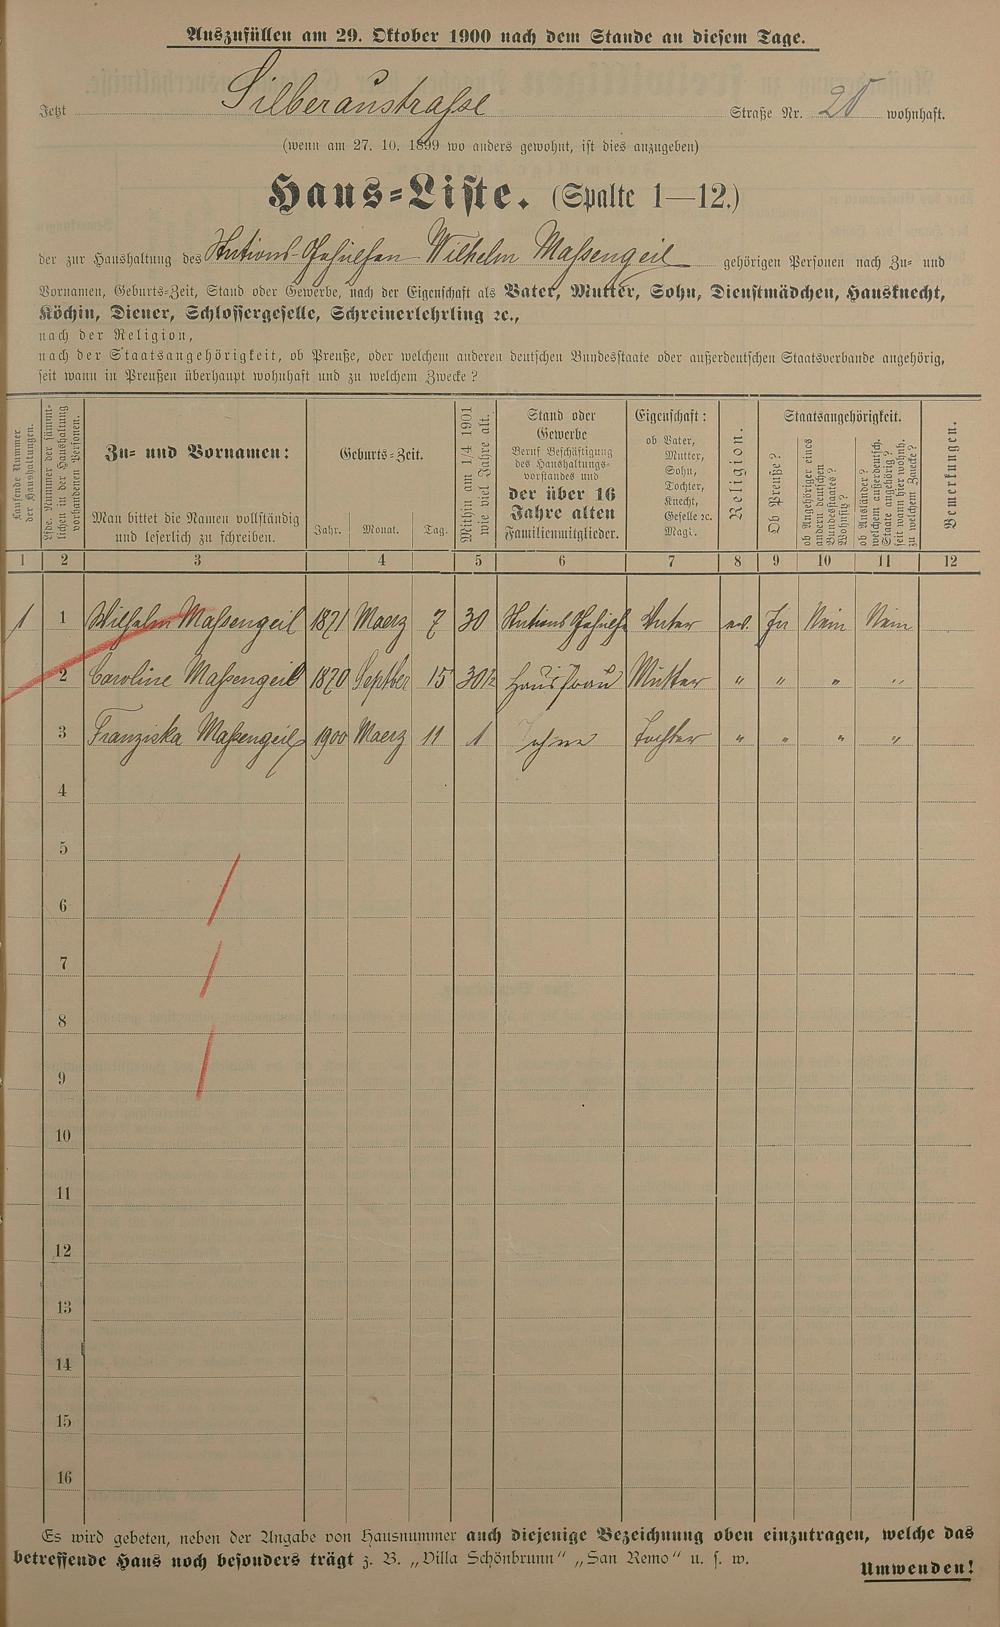 Auszufüllen am 29. Oktober 1900 nach dem Stande an diesem Tage.
Jetzt Silberaustraße Straße Nr. 20 wohnhaft.
(wenn am 27. 10. 1899 wo anders gewohnt, ist dies anzugeben)
Haus=Liste. (Spalte 1—12.)
der zur Haushaltung des Stations-Gehülfen Wilhelm Maßengeil gehörigen Personen nach Zu= und
Vornamen, Geburts=Zeit, Stand oder Gewerbe, nach der Eigenschaft als Vater, Mutter, Sohn, Dienstmädchen, Hausknecht,
Köchin, Diener, Schlossergeselle, Schreinerlehrling ꝛc.,
nach der Religion,
nach der Staatsangehörigkeit, ob Preuße, oder welchem anderen deutschen Bundesstaate oder außerdeutschen Staatsverbande angehörig,
seit wann in Preußen überhaupt wohnhaft und zu welchem Zwecke?
Laufende Nummer
der Haushaltungen.
Lfde. Nummer der sämmt-
lichen in der Haushaltung
vorhandenen Personen.
Zu= und Vornamen:
Man bittet die Namen vollständig
und leserlich zu schreiben.
Geburts=Zeit.
Jahr. Monat. Tag.
Mithin am 1/4 1901
wie viel Jahre alt.
Stand oder
Gewerbe
Beruf Beschäftigung
des Haushaltungs-
vorstandes und
der über 16
Jahre alten
Familienmitglieder.
Eigenschaft:
ob Vater,
Mutter,
Sohn,
Tochter,
Knecht,
Geselle ꝛc.
Magd.
Religion.
Staatsangehörigkeit.
Ob Preuße?
ob Angehöriger eines
andern deutschen
Bundesstaates?
Wohnsitz?
ob Ausländer?
welchem außerdeutsch.
Staate angehörig?
seit wann hier wohnh.
zu welchem Zwecke?
Bemerkungen.
1 2 3 4 5 6 7 8 9 10 11 12
1 1 Wilhelm Maßengeil 1871 Maerz 7 30 Stations Gehülfe Vater ev. Ja Nein Nein
2 Caroline Maßengeil 1870 Septber 15 30½ Hausfrau Mutter " " " "
3 Franziska Maßengeil 1900 Maerz 11 1 ohne Tochter " " " "
4
5
6
7
8
9
10
11
12
13
14
15
16
Es wird gebeten, neben der Angabe von Hausnummer auch diejenige Bezeichnung oben einzutragen, welche das
betreffende Haus noch besonders trägt z. B. „Villa Schönbrunn" „San Remo" u. s. w.
Umwenden!